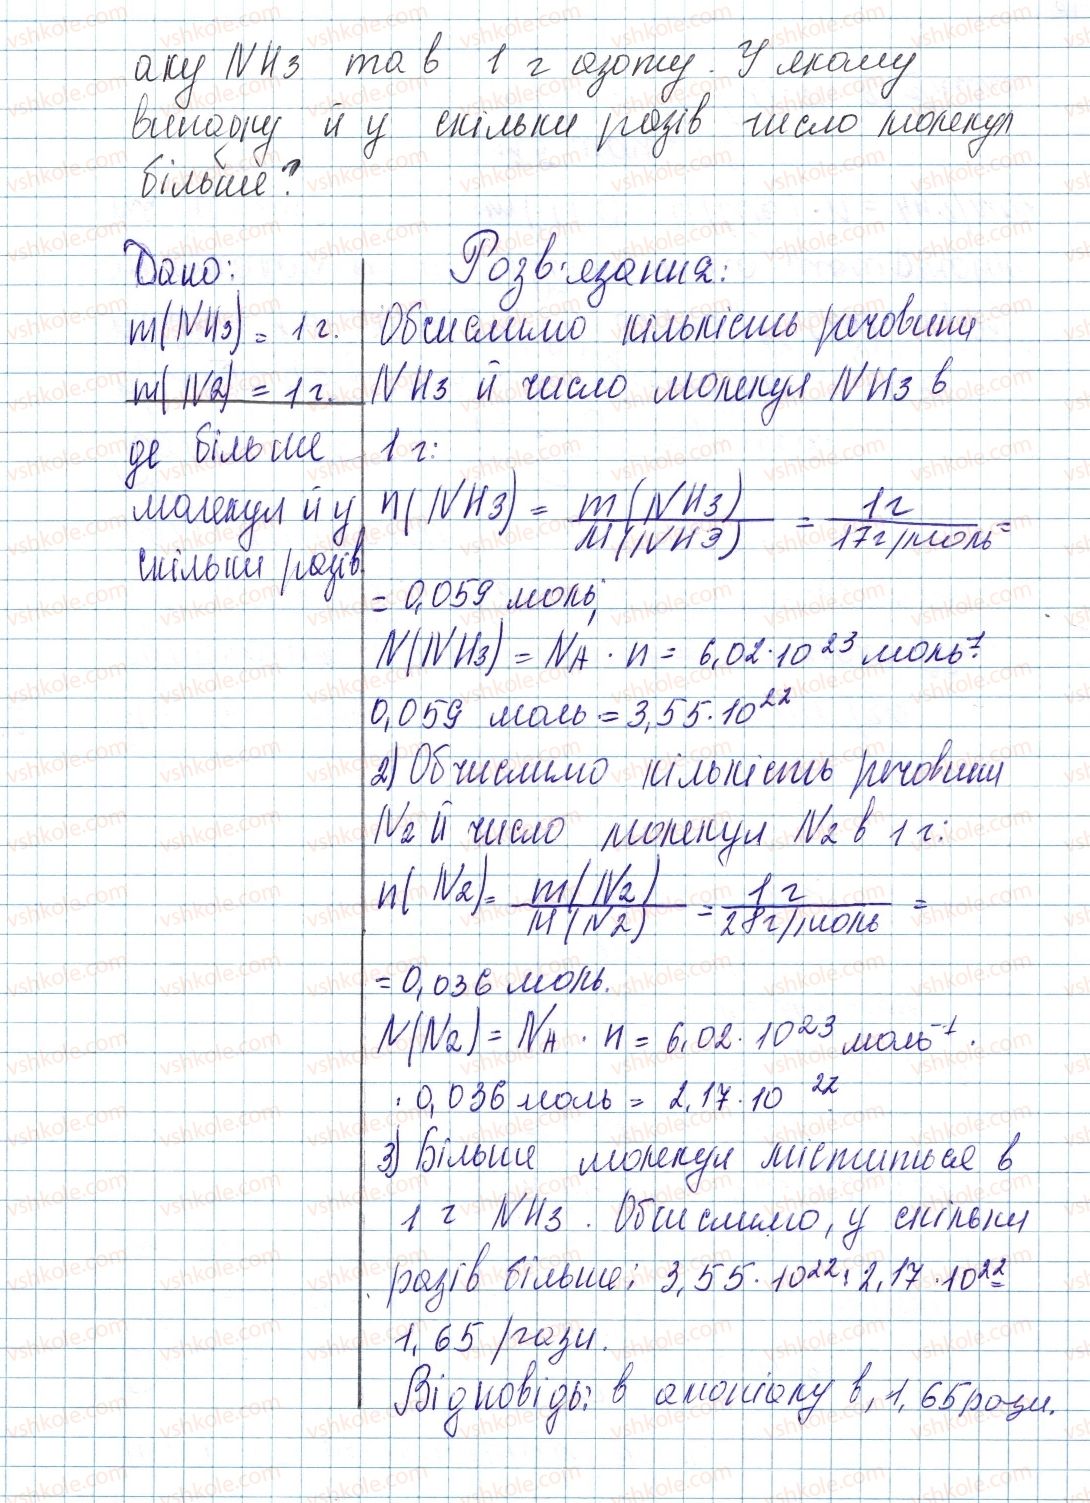 аку NH3 та в 1 г азоту. У якому
випадку й у скільки разів число молекул
більше?
Дано:
m(NH3) = 1 г.
m(N2) = 1 г.
де більше
молекул й у
скільки разів
Розв'язання:
Обчислимо кількість речовини
NH3 й число молекул NH3 в
1 г:
n(NH3) = m(NH3)/M(NH3) = 1г/17г/моль =
= 0,059 моль;
N(NH3) = NA · n = 6,02·10^23 моль^-1·
0,059 моль = 3,55·10^22
2) Обчислимо кількість речовини
N2 й число молекул N2 в 1 г:
n(N2) = m(N2)/M(N2) = 1 г/28г/моль =
= 0,036 моль.
N(N2) = NA · n = 6,02·10^23 моль^-1 ·
· 0,036 моль = 2,17·10^22
3) Більше молекул міститься в
1 г NH3. Обчислимо, у скільки
разів більше: 3,55·10^22 : 2,17·10^22 =
1,65 рази.
Відповідь: в амоніаку в, 1,65 рази.